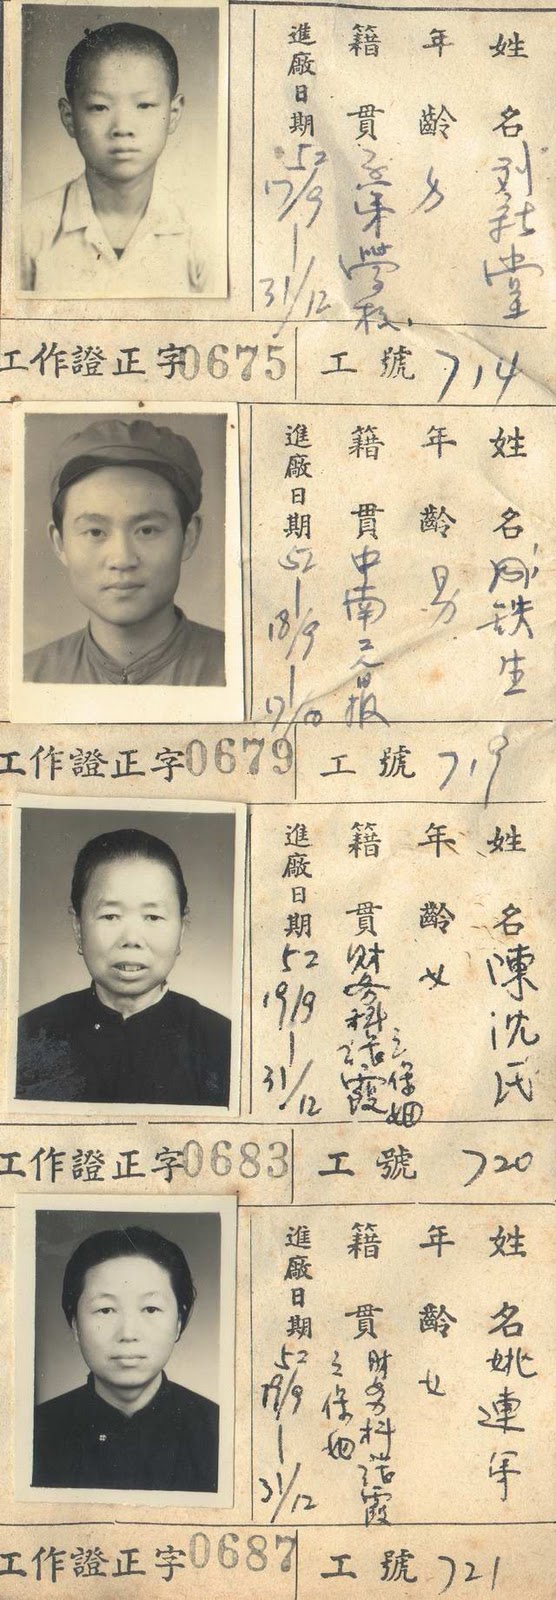 姓名
年齡 女
籍貫 學校
進廠日期 52 17/9 — 31/12
工作證正字0675 工號 714
姓名 鉄生
年齡 男
籍貫 中南工人日报
進廠日期 52 18/9 — 17/10
工作證正字0679 工號 719
姓名 陳沈氏
年齡 女
籍貫 财务科 霞之保姆
進廠日期 52 19/9 — 31/12
工作證正字0683 工號 720
姓名 姚連
年齡 女
籍貫 财务科 霞之保姆
進廠日期 52 19/9 — 31/12
工作證正字0687 工號 721